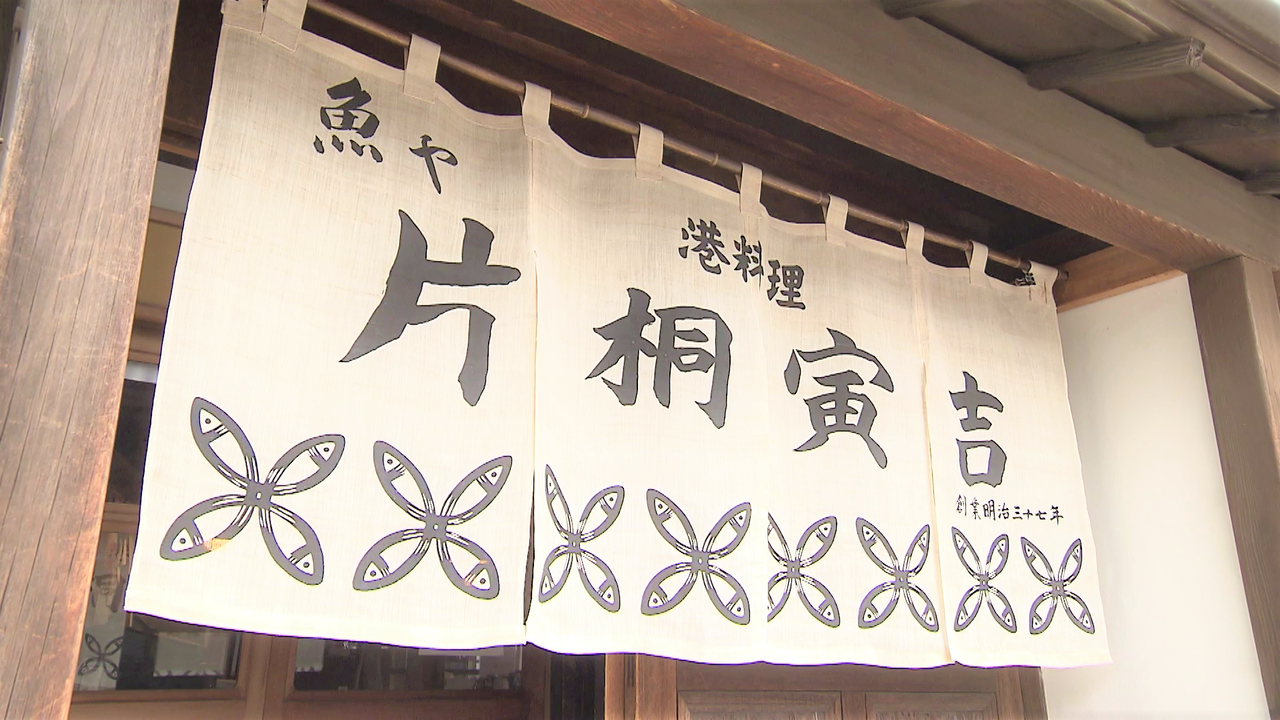 魚や
港料理
片桐寅吉
創業明治三十七年